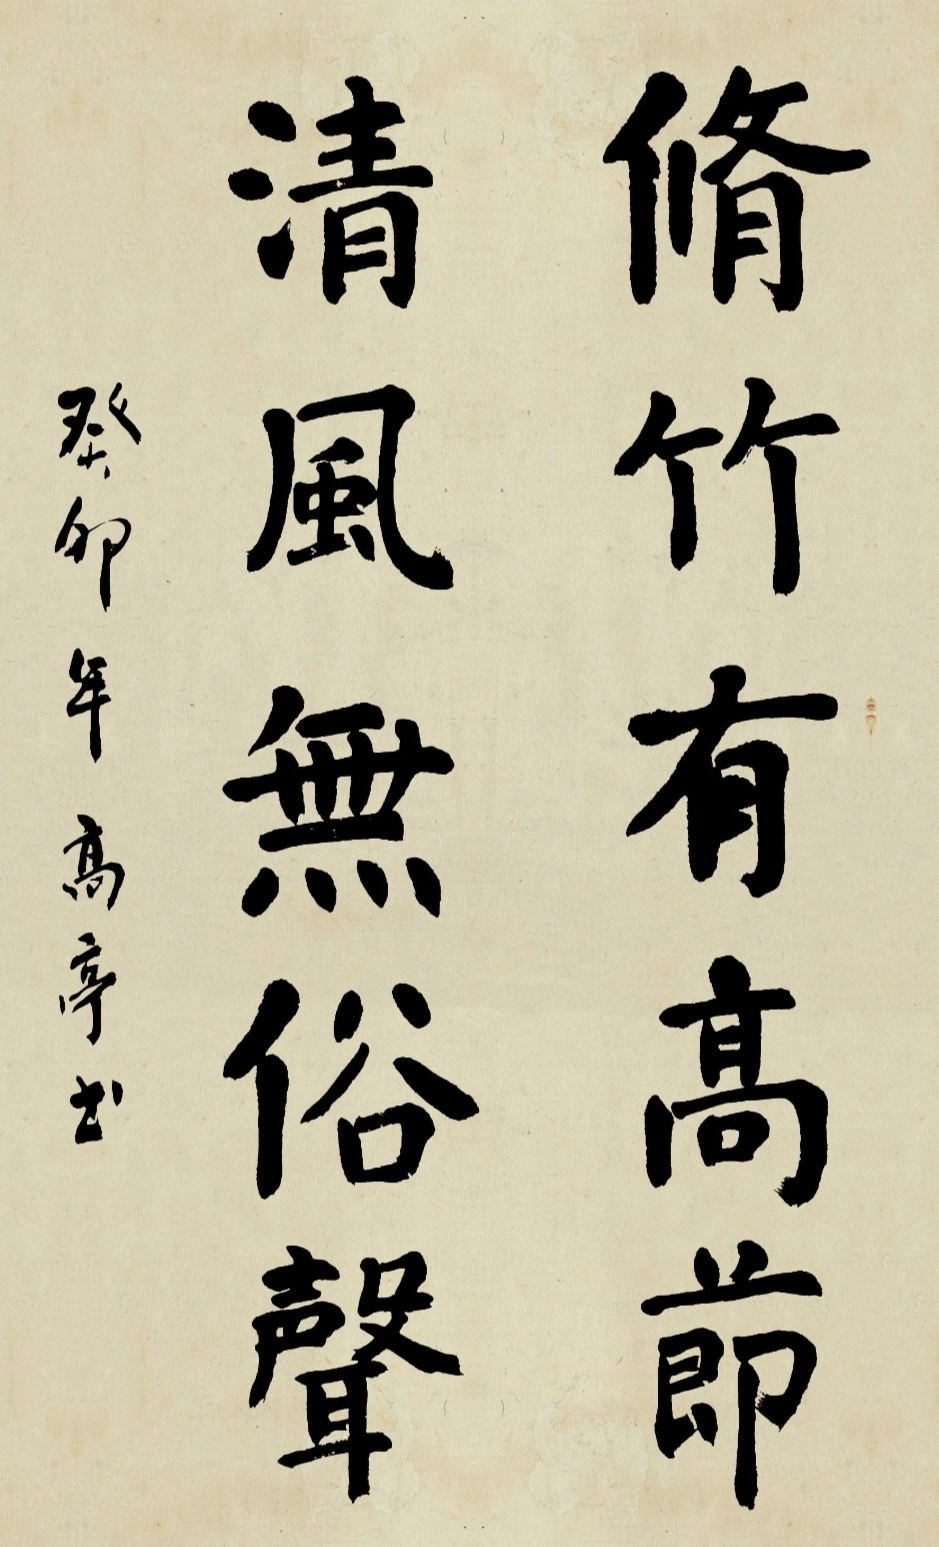 脩竹有高節
清風無俗聲
癸卯年高亭书